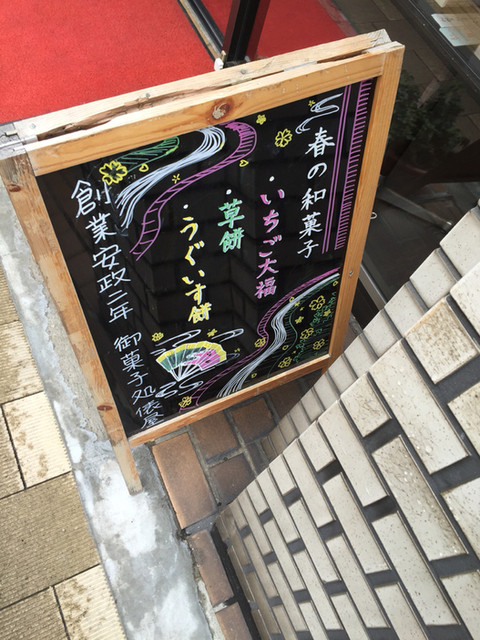 春の和菓子
・いちご大福
・草餅
・うぐいす餅
創業安政二年 御菓子処 俵屋